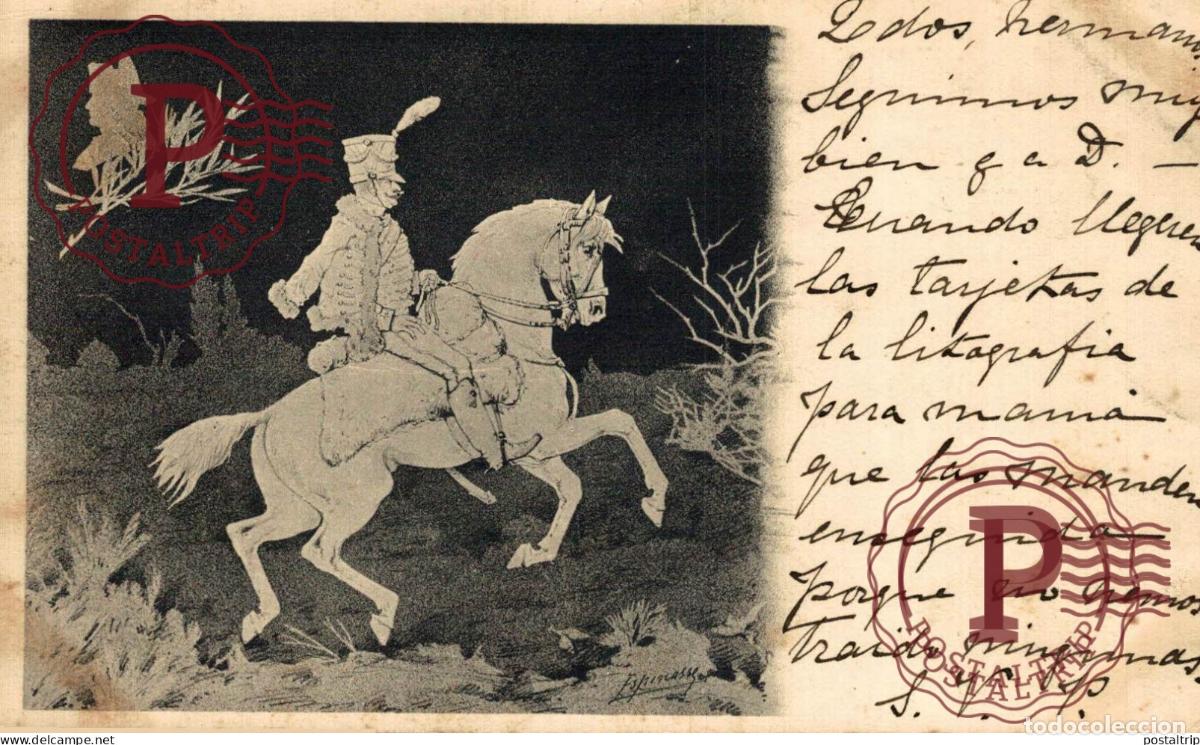 Q dos, hermanos
Seguimos muy
bien g a D. —
Cuando lleguen
las tarjetas de
la litografia
para mamá
que las manden
enseguida
porque no hemos
traido ningunas
S.
Espinosa
P
POSTALTRIP
P
POSTALTRIP
todocoleccion
postaltrip